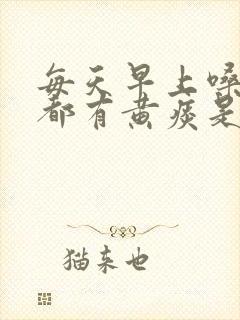 每天早上嗓
都有黄痰是
猫来也